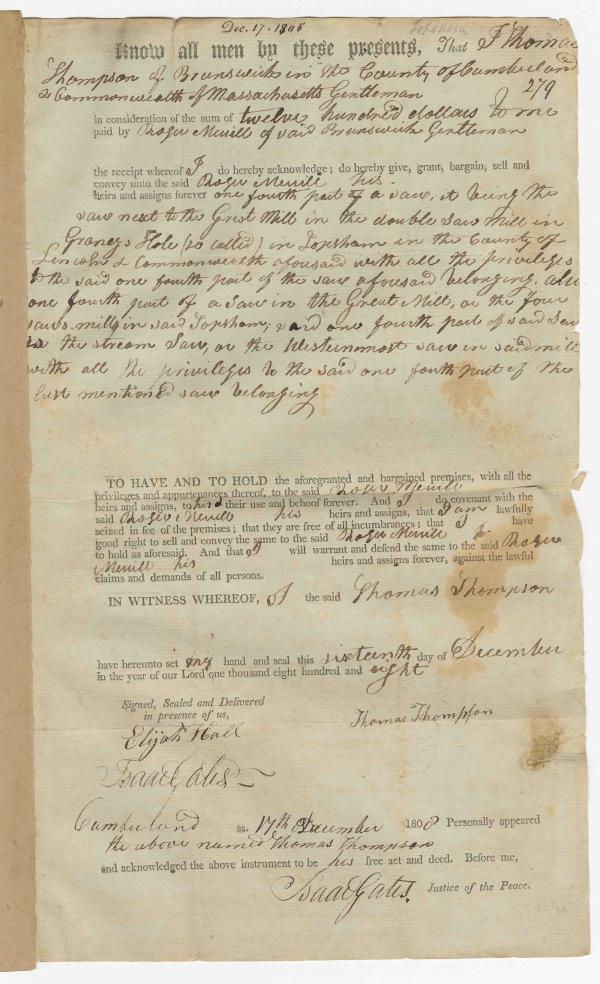 Dec. 17. 1808
Topsham
Know all men by these presents, That I Thomas
Thompson of Brunswick in the County of Cumberland
& Commonwealth of Massachusetts Gentleman
279
in consideration of the sum of twelve hundred dollars to me
paid by Roger Merrill of said Brunswick Gentleman
the receipt whereof I do hereby acknowledge; do hereby give, grant, bargain, sell and
convey unto the said Roger Merrill his
heirs and assigns forever one fourth part of a saw, it being the
saw next to the Grist Mill in the double Saw Mill in
Graneys Hole (so called) in Topsham in the County of
Lincoln & Commonwealth afousaid with all the privileges
to the said one fourth part of the saw afousaid belonging, also
one fourth part of a Saw in the Great Mill, or the four
saws mill, in said Topsham; said one fourth part of said Saw
is the stream Saw, or the Westernmost saw in said mill
with all the privileges to the said one fourth part of the
last mentioned saw belonging
TO HAVE AND TO HOLD the aforegranted and bargained premises, with all the
privileges and appurtenances thereof, to the said Roger Merrill
heirs and assigns, to his & their use and behoof forever. And I do covenant with the
said Roger Merrill his heirs and assigns, that I am lawfully
seized in fee of the premises; that they are free of all incumbrances; that I have
good right to sell and convey the same to the said Roger Merrill
to hold as aforesaid. And that I will warrant and defend the same to the said Roger
Merrill his heirs and assigns forever, against the lawful
claims and demands of all persons.
IN WITNESS WHEREOF, I the said Thomas Thompson
have hereunto set my hand and seal this sixteenth day of December
in the year of our Lord one thousand eight hundred and eight
Signed, Sealed and Delivered
in presence of us,
Thomas Thompson
Elijah Hall
Isaac Gates
Cumberland ss. 17th December 1808 Personally appeared
the above named Thomas Thompson
and acknowledged the above instrument to be his free act and deed. Before me,
Isaac Gates. Justice of the Peace.